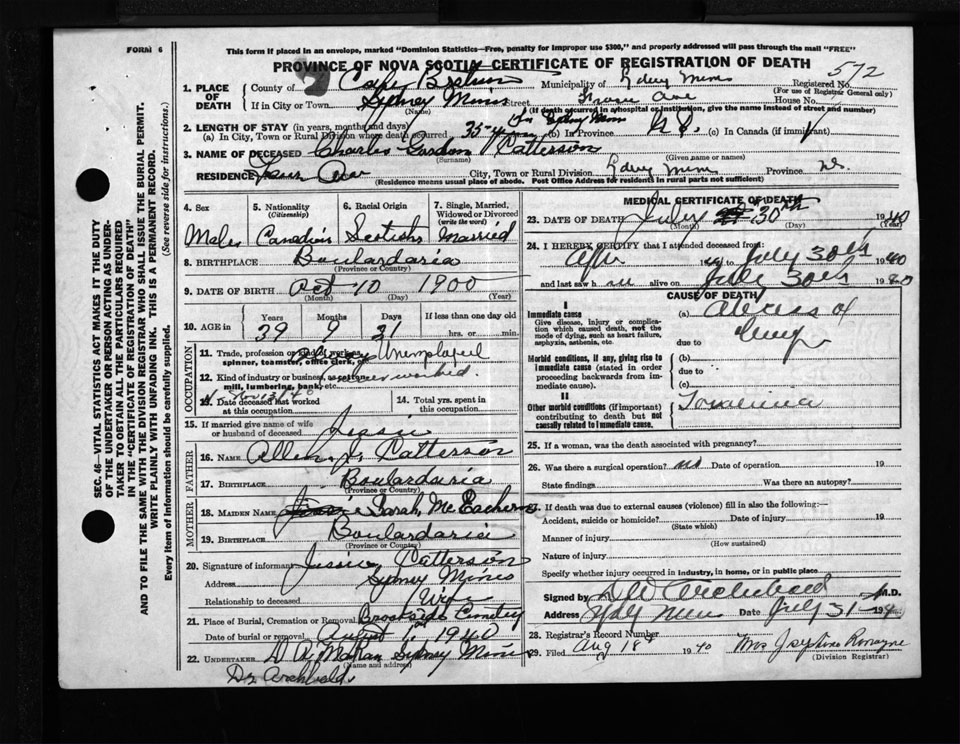 FORM 6
This form if placed in an envelope, marked "Dominion Statistics—Free, penalty for improper use $300," and properly addressed will pass through the mail "FREE"
PROVINCE OF NOVA SCOTIA CERTIFICATE OF REGISTRATION OF DEATH
572
1. PLACE OF DEATH
County of Cape Breton Municipality of Sydney Mines Registered No.
(For use of Registrar General only)
If in City or Town Sydney Mines Street Ave House No.
(Name) (If death occurred in a hospital or institution, give its name instead of street and number)
2. LENGTH OF STAY (in years, months and days) In Sydney Mines
(a) In City, Town or Rural Division where death occurred 35 years (b) In Province N.S. (c) In Canada (if immigrant)
3. NAME OF DECEASED Charles Gordon Patterson
(Surname) (Given name or names)
RESIDENCE City, Town or Rural Division Sydney Mines Province N.S.
(Residence means usual place of abode. Post Office Address for residents in rural parts not sufficient)
4. Sex Male
5. Nationality (Citizenship) Canadian
6. Racial Origin Scotish
7. Single, Married, Widowed or Divorced (write the word) Married
8. BIRTHPLACE Boulardaria
(Province or Country)
9. DATE OF BIRTH Oct 10 1900
(Month) (Day) (Year)
10. AGE in Years Months Days If less than one day old
39 9 21 hrs. or min.
OCCUPATION
11. Trade, profession or kind of work, as spinner, teamster, office clerk, etc. Unemployed
12. Kind of industry or business, as cotton mill, lumbering, bank, etc. never worked.
13. Date deceased last worked at this occupation
14. Total yrs. spent in this occupation
15. If married give name of wife or husband of deceased Jessie
FATHER
16. Name Allen J. Patterson
17. BIRTHPLACE Boulardaria
(Province or Country)
MOTHER
18. MAIDEN NAME Sarah McEachern
19. BIRTHPLACE Boulardaria
(Province or Country)
20. Signature of informant Jessie Patterson
Address Sydney Mines
Relationship to deceased Wife
21. Place of Burial, Cremation or Removal
Date of burial or removal August 1st 1940
22. UNDERTAKER Sydney Mines
(Name and address)
Dr Archibald.
MEDICAL CERTIFICATE OF DEATH
23. DATE OF DEATH July 30th 1940
(Month) (Day) (Year)
24. I HEREBY CERTIFY that I attended deceased from:
to July 30th 1940
and last saw h alive on July 30th 1940
CAUSE OF DEATH
I
Immediate cause (a) Abcess of Lung
Give disease, injury or complication which caused death, not the mode of dying, such as heart failure, asphyxia, asthenia, etc.
due to
Morbid conditions, if any, giving rise to immediate cause (stated in order proceeding backwards from immediate cause)
(b)
due to
(c)
II
Other morbid conditions (if important) contributing to death but not causally related to immediate cause.
25. If a woman, was the death associated with pregnancy?
26. Was there a surgical operation? no Date of operation 19
State findings Was there an autopsy?
27. If death was due to external causes (violence) fill in also the following:—
Accident, suicide or homicide? Date of injury 19
(State which)
Manner of injury
(How sustained)
Nature of injury
Specify whether injury occurred in industry, in home, or in public place
Signed by Archibald M.D.
Address Syd. Mines Date July 31 1940
28. Registrar's Record Number
29. Filed Aug 1940 Mrs
(Division Registrar)
SEC. 46—VITAL STATISTICS ACT MAKES IT THE DUTY
OF THE UNDERTAKER OR PERSON ACTING AS UNDERTAKER TO OBTAIN ALL THE PARTICULARS REQUIRED
IN THE "CERTIFICATE OF REGISTRATION OF DEATH"
AND TO FILE THE SAME WITH THE DIVISION REGISTRAR WHO SHALL ISSUE THE BURIAL PERMIT.
WRITE PLAINLY WITH UNFADING INK. THIS IS A PERMANENT RECORD.
Every item of information should be carefully supplied. (See reverse side for instructions.)